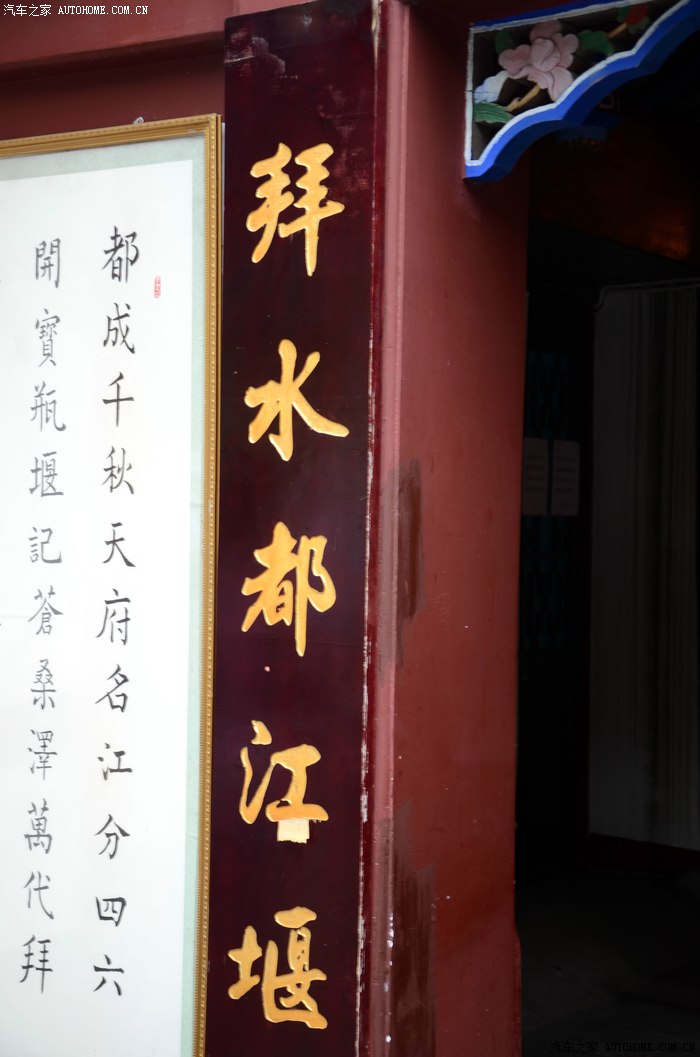 汽车之家 AUTOHOME.COM.CN
拜水都江堰
都成千秋天府名江分四六
開寶瓶堰記蒼桑澤萬代拜
汽车之家 AUTOHOME.COM.CN